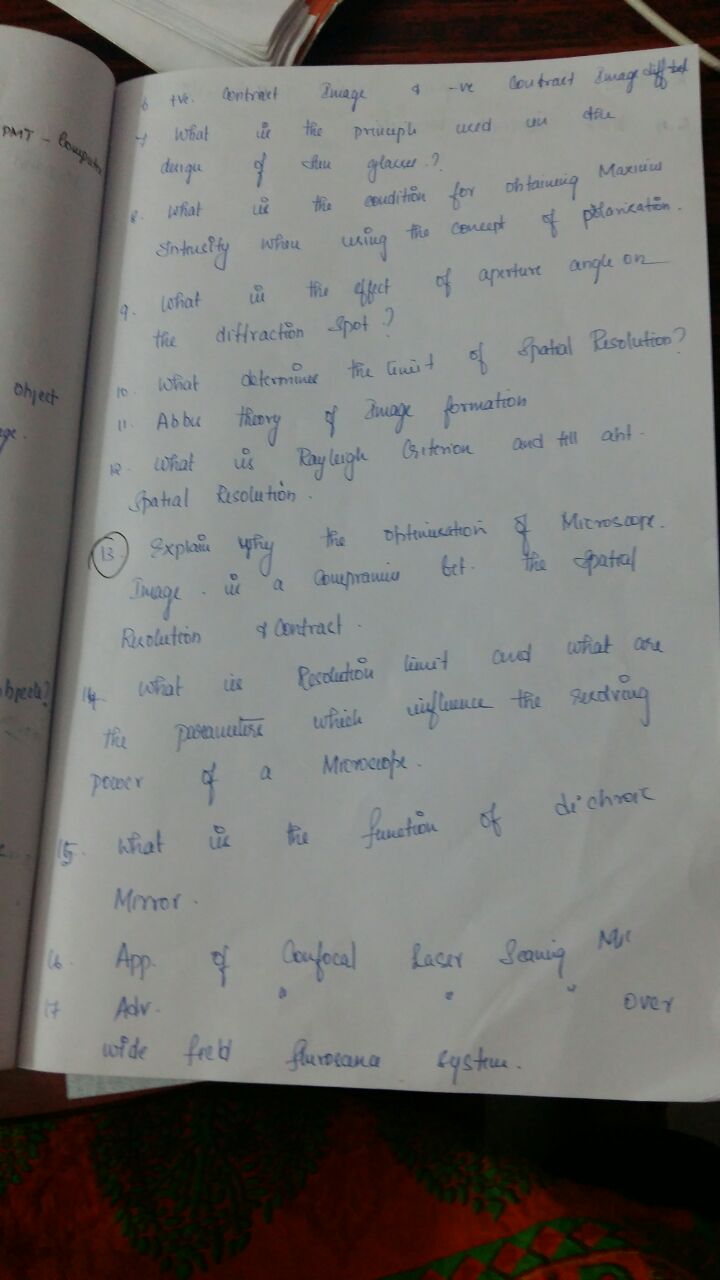 PMT - Computer
Object
6 +ve. Contract Image & -ve Contract Image diff
7. What is the principle used in the
design of sun glasses.?
8. What is the condition for obtaining Maximum
Intensity when using the concept of polarisation.
9. What is the effect of aperture angle on
the diffraction spot?
10. What determines the limit of Spatial Resolution?
11. Abbe theory of Image formation
12. What is Rayleigh Criterion and tell abt.
Spatial Resolution.
13. Explain why the optimisation of Microscope.
Image. is a compramis bet. the spatial
Resolution & contract.
14. What is Resolution limit and what are
the parameters which influence the resolving
power of a Microscope.
15. What is the function of dichroic
Mirror.
16. App. of Confocal Laser Scaning Mic
17 Adv. " " " over
wide field flurosance system.